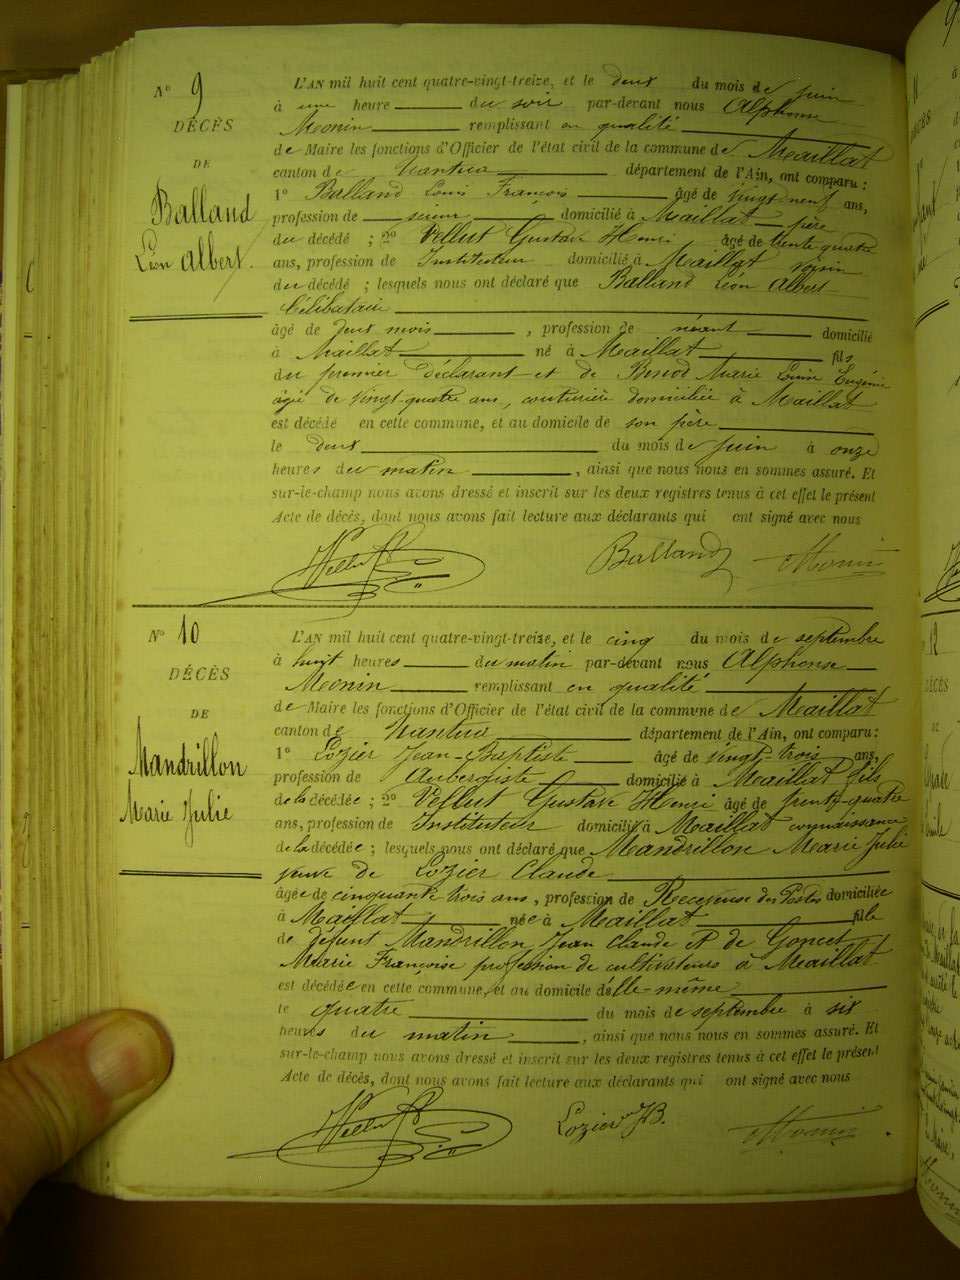 N° 9
DÉCÈS
DE
Balland
Léon Albert.
L'AN mil huit cent quatre-vingt-treize, et le deux du mois de juin
à une heure du soir par-devant nous Alphonse
Monin remplissant en qualité
de Maire les fonctions d'Officier de l'état civil de la commune de Maillat
canton de Nantua département de l'Ain, ont comparu :
1° Balland Louis François âgé de vingt-neuf ans,
profession de scieur domicilié à Maillat père
du décédé ; 2° Vellut Gustave Henri âgé de trente quatre
ans, profession de Instituteur domicilié à Maillat voisin
du décédé ; lesquels nous ont déclaré que Balland Léon Albert
Célibataire
âgé de deux mois , profession de néant domicilié
à Maillat né à Maillat fils
du premier déclarant et de Benod Marie Louise Eugénie
âgée de vingt-quatre ans, couturière domiciliée à Maillat
est décédé en cette commune, et au domicile de son père
le deux du mois de juin à onze
heures du matin , ainsi que nous nous en sommes assuré. Et
sur-le-champ nous avons dressé et inscrit sur les deux registres tenus à cet effet le présent
Acte de décès, dont nous avons fait lecture aux déclarants qui ont signé avec nous
Vellut Balland Monin
N° 10
DÉCÈS
DE
Mandrillon
Marie Julie
L'AN mil huit cent quatre-vingt-treize, et le cinq du mois de septembre
à huit heures du matin par-devant nous Alphonse
Monin remplissant en qualité
de Maire les fonctions d'Officier de l'état civil de la commune de Maillat
canton de Nantua département de l'Ain, ont comparu :
1° Lozier Jean-Baptiste âgé de vingt-trois ans,
profession de Aubergiste domicilié à Maillat fils
de la décédée ; 2° Vellut Gustave Henri âgé de trente-quatre
ans, profession de Instituteur domicilié à Maillat connaissance
de la décédée ; lesquels nous ont déclaré que Mandrillon Marie Julie
veuve de Lozier Claude
âgée de cinquante trois ans, profession de Receveuse des Postes domiciliée
à Maillat née à Maillat fille
de défunt Mandrillon Jean Claude & de Goncet
Marie Françoise profession de cultivateurs à Maillat
est décédée en cette commune, et au domicile d'elle-même
le quatre du mois de septembre à six
heures du matin , ainsi que nous nous en sommes assuré. Et
sur-le-champ nous avons dressé et inscrit sur les deux registres tenus à cet effet le présent
Acte de décès, dont nous avons fait lecture aux déclarants qui ont signé avec nous
Vellut Lozier JB. Monin